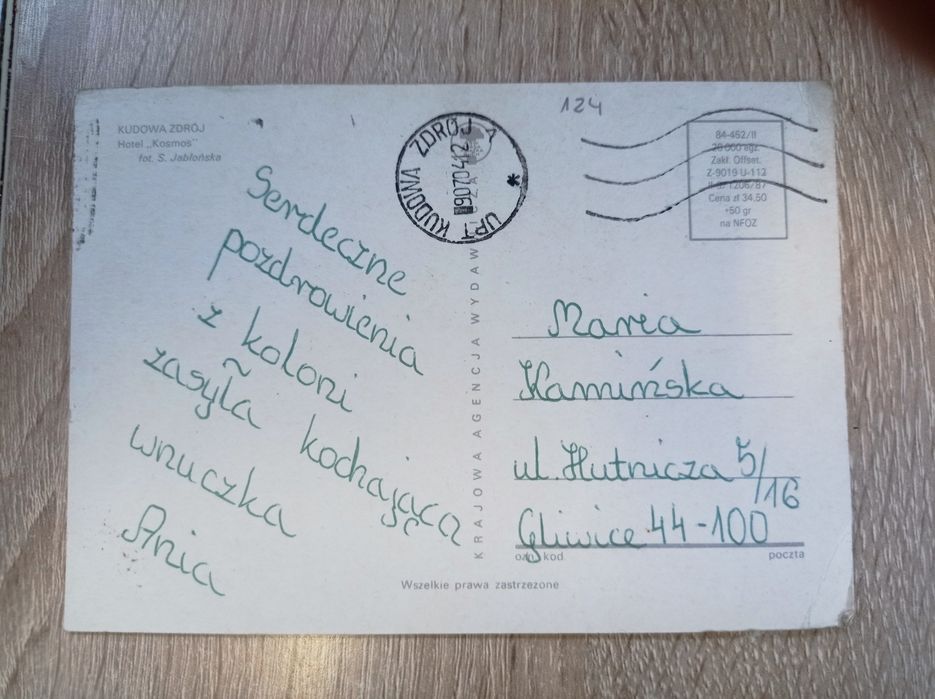 KUDOWA ZDRÓJ
Hotel „Kosmos"
fot. S. Jabłońska
Serdeczne
pozdrowienia
z koloni
zasyła kochająca
wnuczka
Ania
KRAJOWA AGENCJA WYDAW
UPT KUDOWA ZDRÓJ 4
*
124
84-452/II
20 000 egz.
Zakł. Offset.
Z-9019 U-112
1206/87
Cena zł 34.50
+50 gr
na NFOZ
Maria
Kamińska
ul. Hutnicza 5/16
Gliwice 44-100
kod
poczta
Wszelkie prawa zastrzeżone